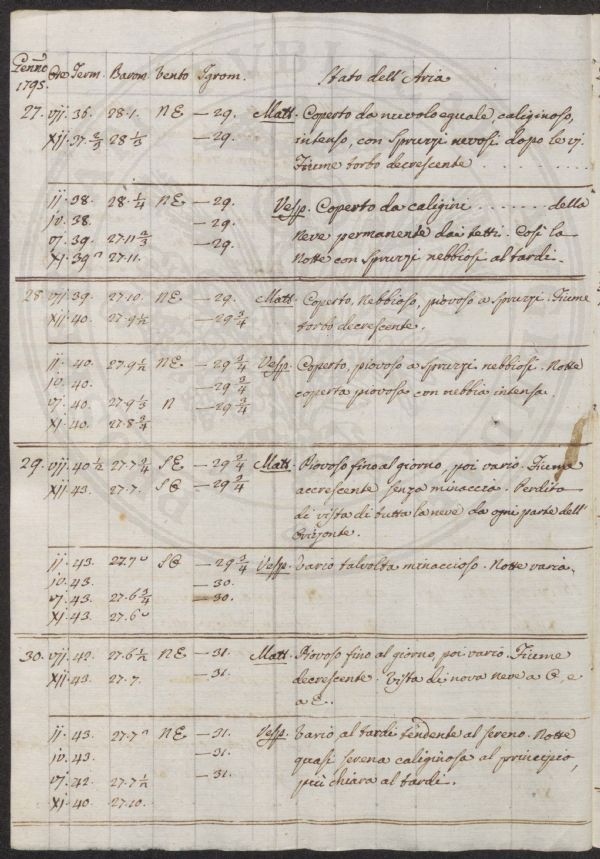 Genno 1795. Ore Term. Barom. Vento Igrom. Stato dell'Aria
27. vij. 36. 28.1. NE — 29. Matt. Coperto da nuvolo eguale caliginoso,
xij. 37. 2/3 28 1/3 — 29. intenso, con spruzzi nevosi dopo le vj.
Fiume torbo decrescente
ij. 38. 28. 1/4 NE — 29. Vesp. Coperto da caligini della
iv. 38. — 29. neve permanente dai tetti. Così la
vj. 39. 27.11 2/3 — 29. Notte con spruzzi nebbiosi al tardi.
xj. 39 27.11.
28 vij. 39. 27.10. NE. — 29. Matt. Coperto, Nebbioso, piovoso a spruzzi. Fiume
xij. 40. 27.9 1/2 — 29 3/4 torbo decrescente.
ij. 40. 27.9 1/2 NE. — 29 3/4 Vesp. Coperto, piovoso a spruzzi nebbiosi. Notte
iv. 40. — 29 3/4 coperta piovosa con nebbia intensa.
vj. 40. 27.9 1/3 N — 29 3/4
xj. 40. 27.8 3/4
29. vij. 40 1/2 27.7 3/4 SE — 29 3/4 Matt. Piovoso fino al giorno, poi vario. Fiume
xij. 43. 27.7. SO — 29 3/4 accrescente senza minaccia. Perdita
di vista di tutta la neve da ogni parte dell'
Orizonte.
ij. 43. 27.7 SO — 29 3/4 Vesp. Vario talvolta minaccioso. Notte varia.
iv. 43. — 30.
vj. 43. 27.6 3/4 — 30.
xj. 43. 27.6
30. vij. 42. 27.6 1/2 NE — 31. Matt. Piovoso fino al giorno, poi vario. Fiume
xij. 43. 27.7. — 31. decrescente. Vista di nova neve a O, e
a E.
ij. 43. 27.7 NE — 31. Vesp. Vario al tardi tendente al sereno. Notte
iv. 43. — 31. quasi serena caliginosa al principio,
vj. 42. 27.7 1/2 — 31. più chiara al tardi.
xj. 40. 27.10.